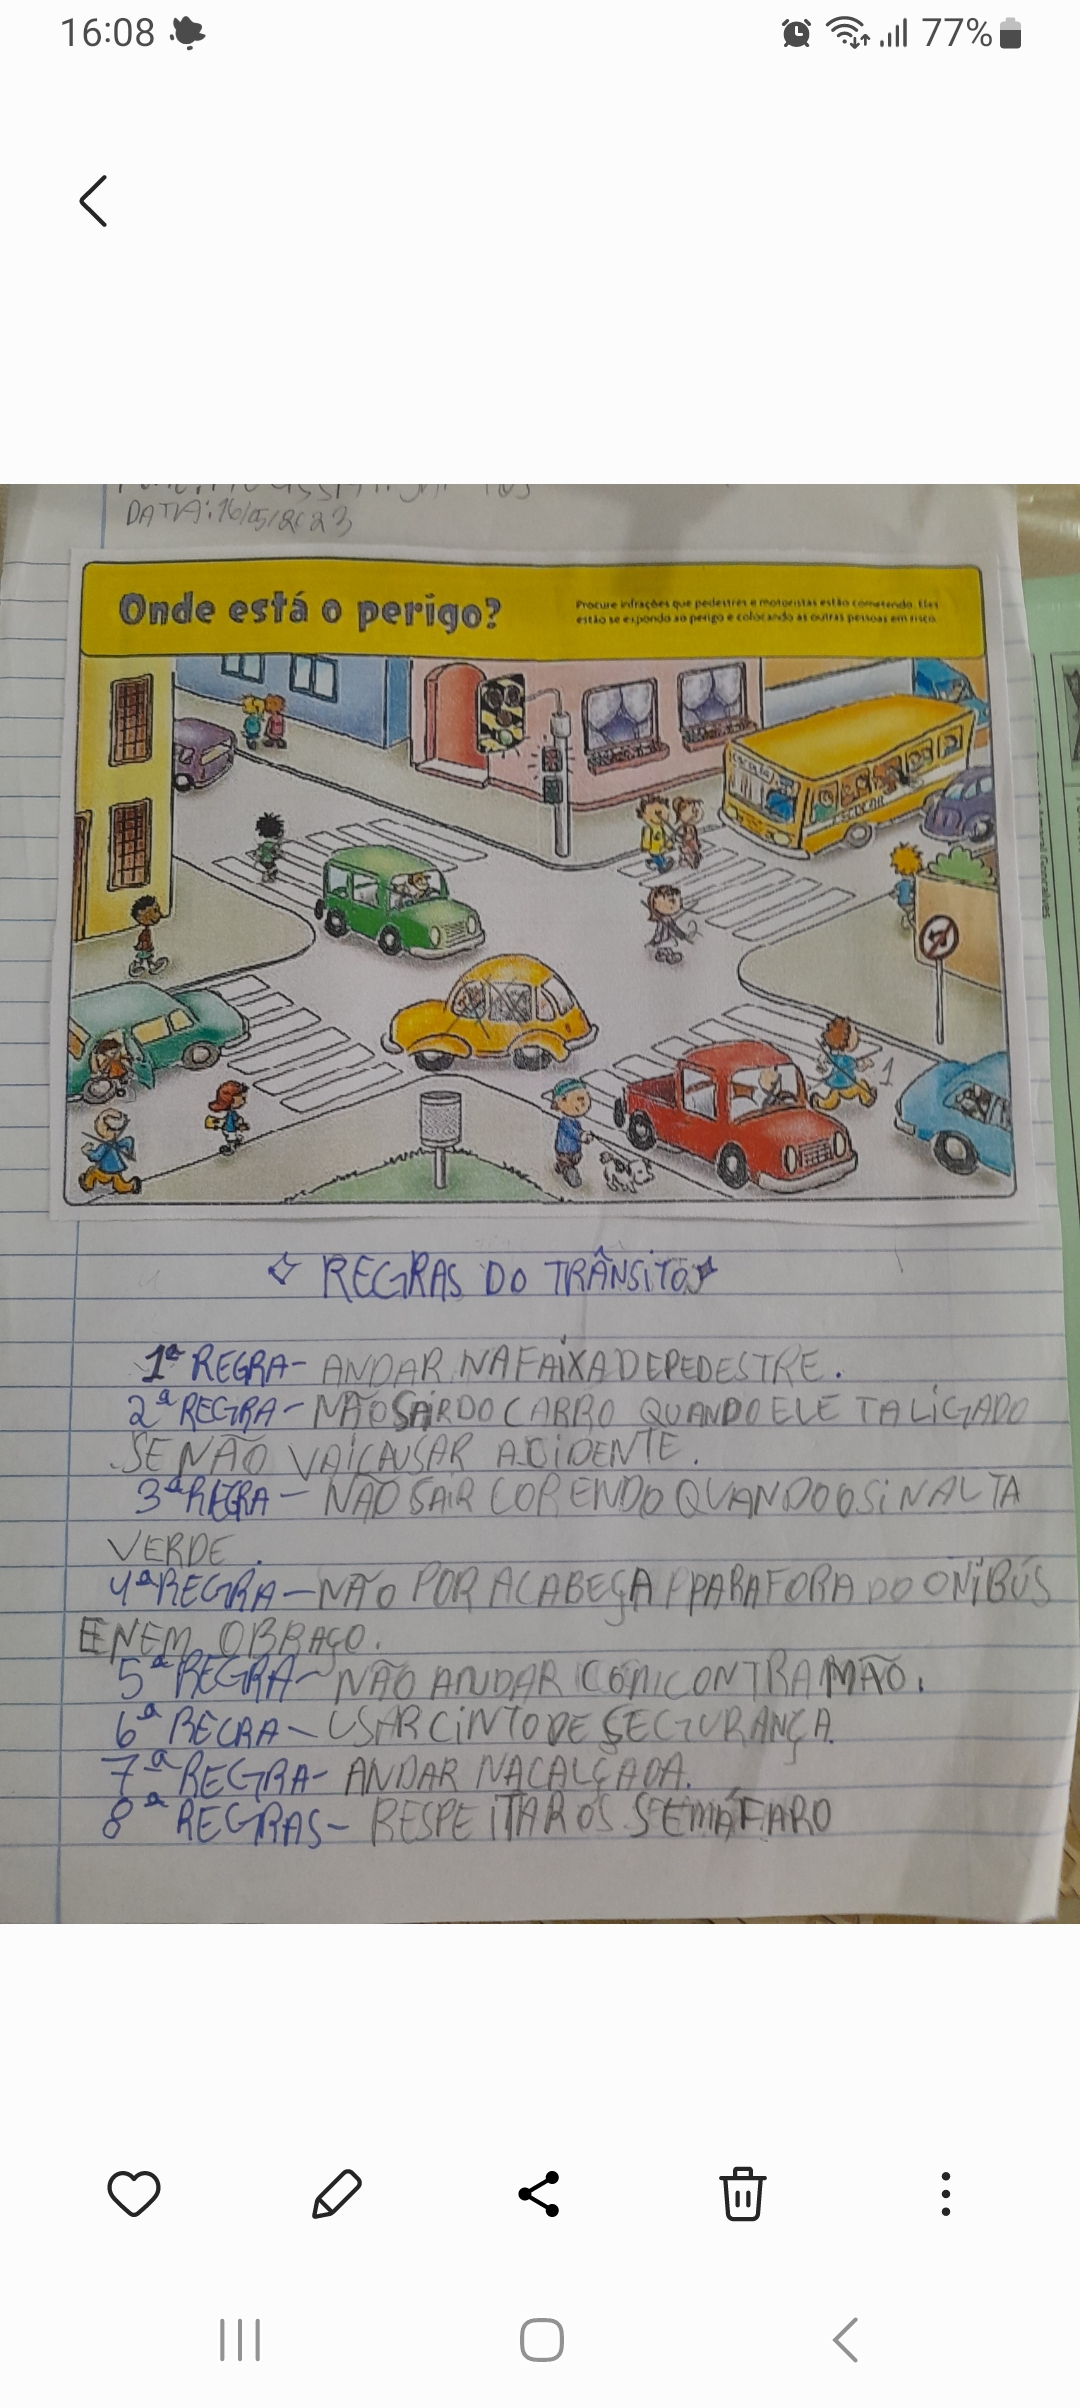 16:08
77%
DATA: 16/05/2023
Onde está o perigo?
Procure infrações que pedestres e motoristas estão cometendo. Eles
estão se expondo ao perigo e colocando as outras pessoas em risco.
ESCOLAR
1
REGRAS DO TRÂNSITO
1ª REGRA- ANDAR NA FAIXA DE PEDESTRE.
2ª REGRA- NÃO SAIR DO CARRO QUANDO ELE TA LIGADO
SE NÃO VAI CAUSAR ACIDENTE.
3ª REGRA- NÃO SAIR CORENDO QUANDO O SINAL TA
VERDE.
4ª REGRA- NÃO POR A CABEÇA PPARA FORA DO ÔNIBÚS
E NEM O BRAÇO.
5ª REGRA- NÃO ANDAR COM CONTRA MÃO.
6ª REGRA- USAR CINTO DE SEGURANÇA.
7ª REGRA- ANDAR NA CALÇADA.
8ª REGRAS- RESPEITAR OS SEMÁFARO